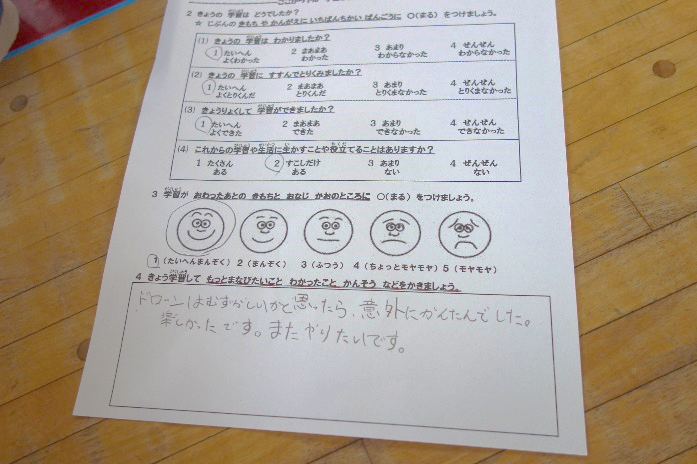 2 きょうの 学習は どうでしたか?
☆ じぶんの きもち や かんがえに いちばんちかい ばんごうに ○(まる) をつけましょう。
(1) きょうの 学習は わかりましたか?
1 たいへん よくわかった 2 まあまあ わかった 3 あまり わからなかった 4 ぜんぜん わからなかった
(2) きょうの 学習に すすんでとりくみましたか?
1 たいへん よくとりくんだ 2 まあまあ とりくんだ 3 あまり とりくまなかった 4 ぜんぜん とりくまなかった
(3) きょうりょくして 学習ができましたか?
1 たいへん よくできた 2 まあまあ できた 3 あまり できなかった 4 ぜんぜん できなかった
(4) これからの学習や生活に生かすことや役立てることはありますか?
1 たくさん ある 2 すこしだけ ある 3 あまり ない 4 ぜんぜん ない
3 学習が おわったあとの きもちと おなじ かおのところに ○(まる) をつけましょう。
1 (たいへんまんぞく) 2 (まんぞく) 3 (ふつう) 4 (ちょっとモヤモヤ) 5 (モヤモヤ)
4 きょう学習して もっとまなびたいこと わかったこと かんそう などをかきましょう。
ドローンはむずかしいかと思ったら、意外にかんたんでした。
楽しかったです。またやりたいです。